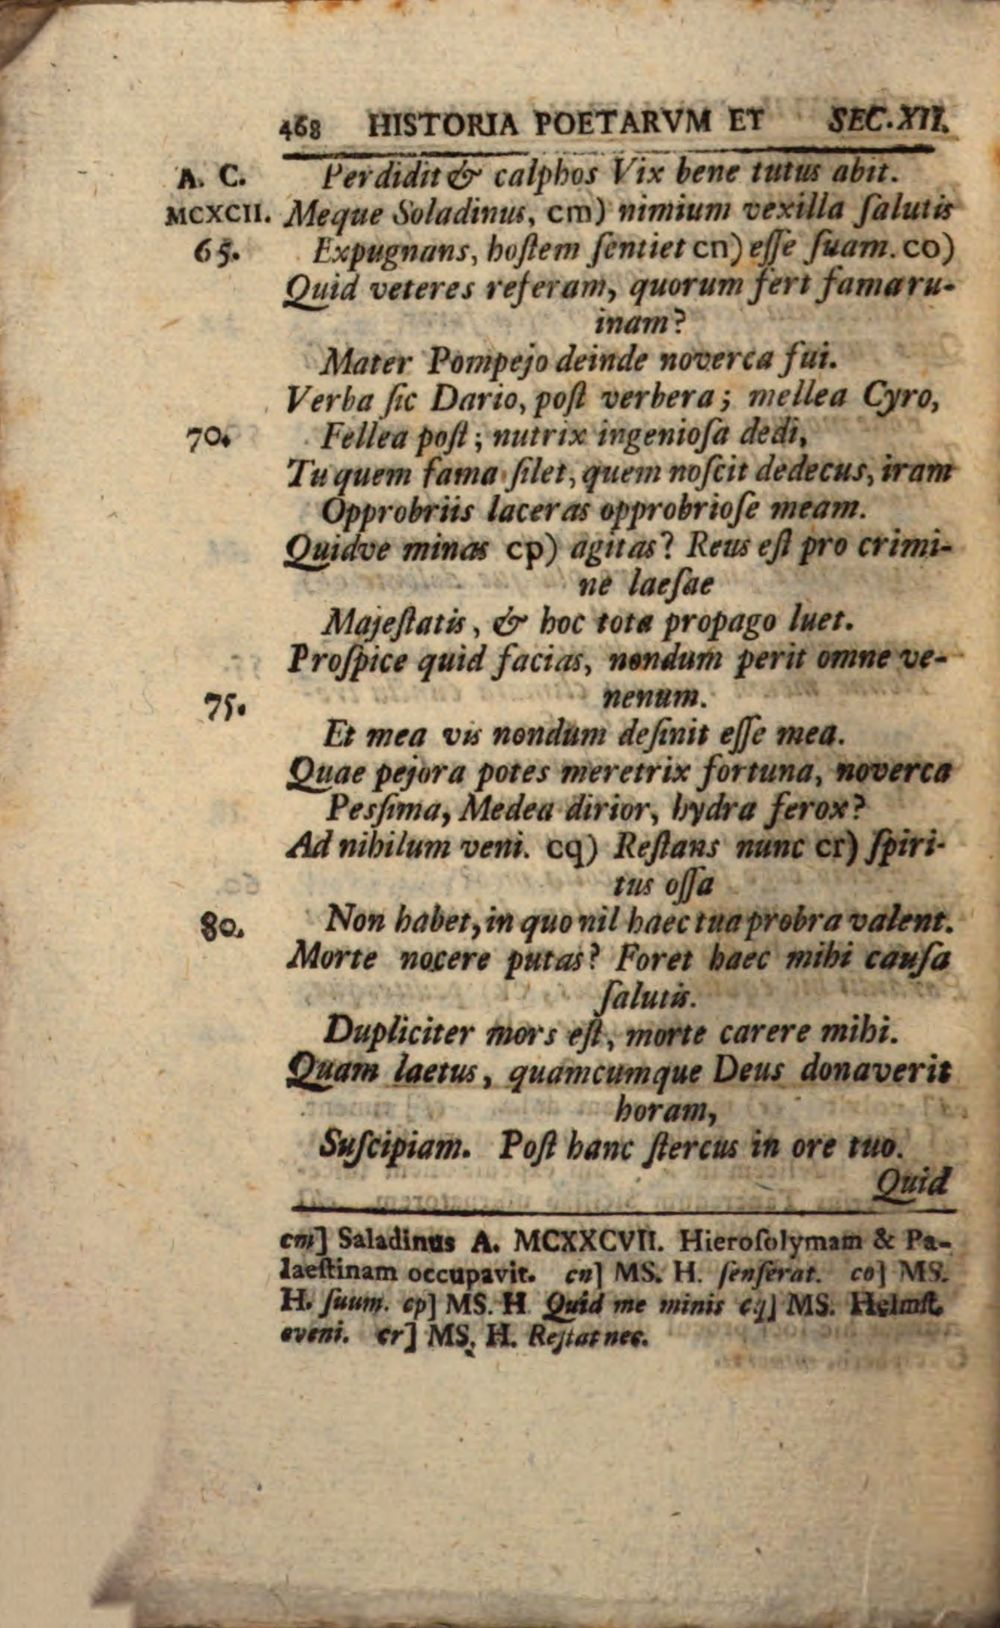 468 HISTORIA POETARVM ET SEC. XII.
A. C. Perdidit & calphos Vix bene tutus abit.
MCXCII. Meque Soladinus, cm) nimium vexilla ſalutis
65. Expugnans, hoſtem ſentiet cn) eſſe ſuam. co)
Quid veteres referam, quorum fert fama ru-
inam?
Mater Pompejo deinde noverca fui.
Verba ſic Dario, poſt verbera; mellea Cyro,
70. Fellea poſt; nutrix ingenioſa dedi,
Tu quem fama ſilet, quem noſcit dedecus, iram
Opprobriis laceras opprobrioſe meam.
Quidve minas cp) agitas? Reus eſt pro crimi-
ne laeſae
Majeſtatis, & hoc tota propago luet.
Proſpice quid facias, nondum perit omne ve-
75. nenum.
Et mea vis nondum deſinit eſſe mea.
Quae pejora potes meretrix fortuna, noverca
Pesſima, Medea dirior, hydra ferox?
Ad nihilum veni. cq) Reſtans nunc cr) ſpiri-
tus oſſa
80. Non habet, in quo nil haec tua probra valent.
Morte nocere putas? Foret haec mihi cauſa
ſalutis.
Dupliciter mors eſt, morte carere mihi.
Quam laetus, quamcumque Deus donaverit
horam,
Suſcipiam. Poſt hanc ſtercus in ore tuo.
Quid
cm] Saladinus A. MCXXCVII. Hieroſolymam & Pa-
laeſtinam occupavit. cn] MS. H. ſenſerat. co] MS.
H. ſuum. cp] MS. H Quid me minis cq] MS. Helmſt.
eveni. cr] MS. H. Reſtat nec.